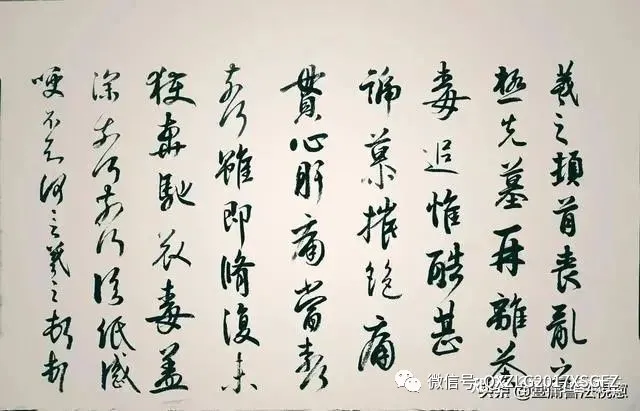 羲之頓首喪亂之
極先墓再離荼
毒追惟酷甚
號慕摧絕痛
貫心肝痛當奈何
奈何雖即脩復未
獲奔馳哀毒益
深奈何奈何臨紙感
哽不知何言羲之頓首頓首
微信号: QXZLG2017XSGFZ